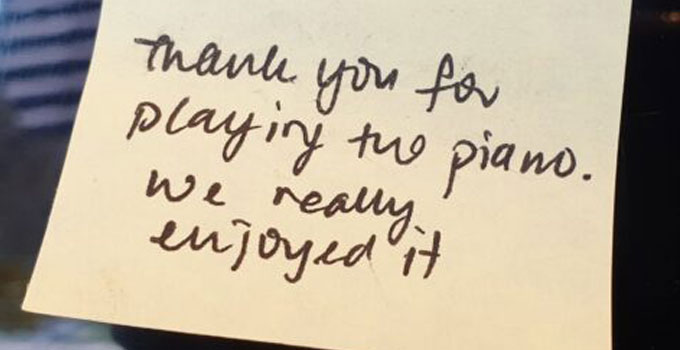 Thank you for
playing the piano.
We really
enjoyed it